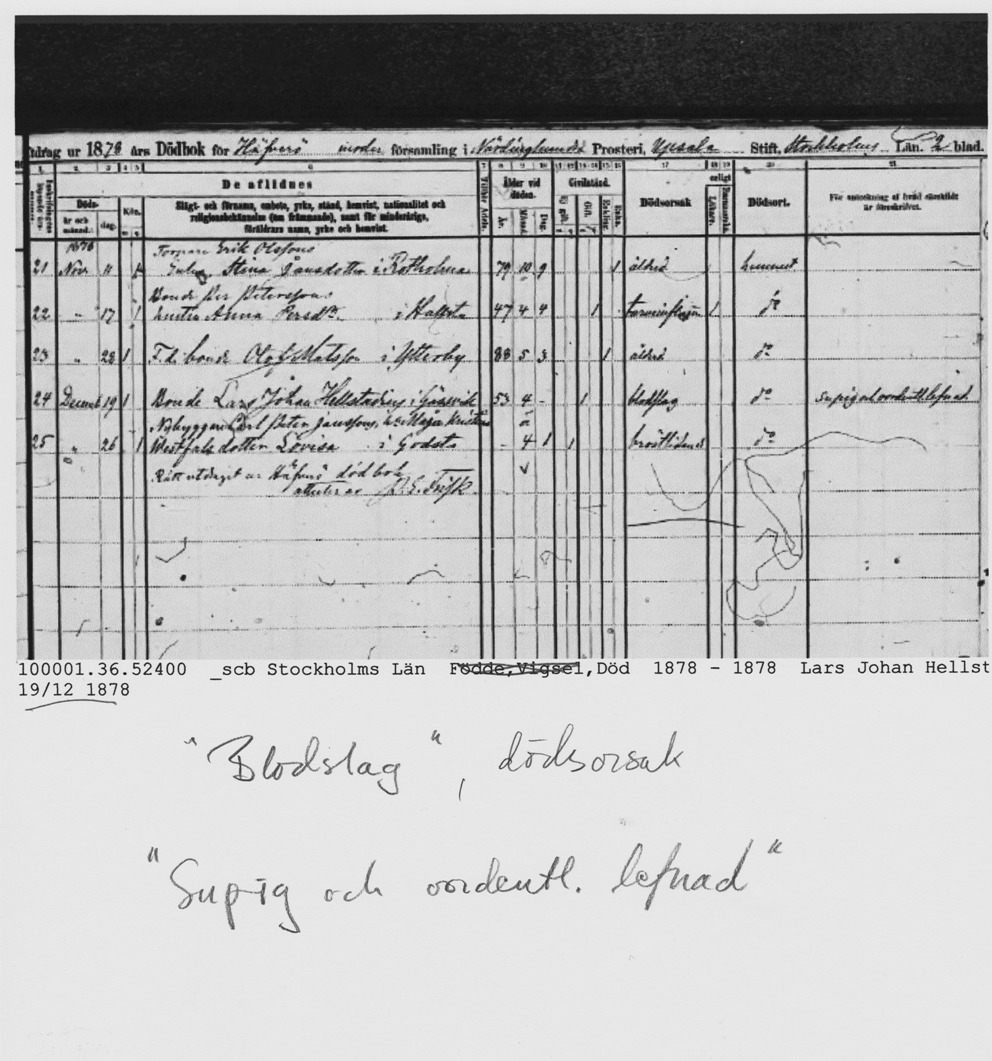 tdrag ur 1878 års Dödbok för Häfverö moder församling i Prosteri, Upsala Stift, Stockholms Län. 2 blad.
1. 2. 3 4 5 6 7 8 9 10 11 12 13 14 15 16 17 18 19 20 21
De aflidnes
Döds-
år och månad.
dag.
Kön.
Slägt- och förnamn, embete, yrke, stånd, hemvist, nationalitet och
religionsbekännelse (om främmande), samt för minderårige,
föräldrars namn, yrke och hemvist.
Ålder vid döden.
År.
Månad.
Dag.
Civilstånd.
Ej gift.
Gift.
Enkling.
Enka.
Dödsorsak
enligt
Läkare.
Dödsort.
För anteckning af hvad särskildt
är föreskrifvet.
1878
Torpare Erik Olssons
21 Nov. 11 1 Enka Stina Jansdotter i Rotholma 79 10 9 1 ålder 1 hemmet
Bonde Per Peterssons
22 " 17 1 hustru Anna Persdr. i Hallsta 47 4 4 1 1 do
23 " 28 1 F.d. bonde Olof Matsson i Ytterby 88 5 3 1 ålder do
24 Decemb 19 1 Bonde Lars Johan Hellstadius i 53 4 - 1 blodslag do supig och oordentl. lefnad
Nybyggaren Carl Peter Janssons, o. Maja Kristina
25 " 26 1 Westfalsdotter Lovisa i Godsta - 4 1 1 bröstlidande do
Rätt utdraget ur Häfverö dödbok
attesterar
100001.36.52400 _scb Stockholms Län Födde,Vigsel,Död 1878 - 1878 Lars Johan Hellst
19/12 1878
"Blodslag", dödsorsak
"Supig och oordentl. lefnad"